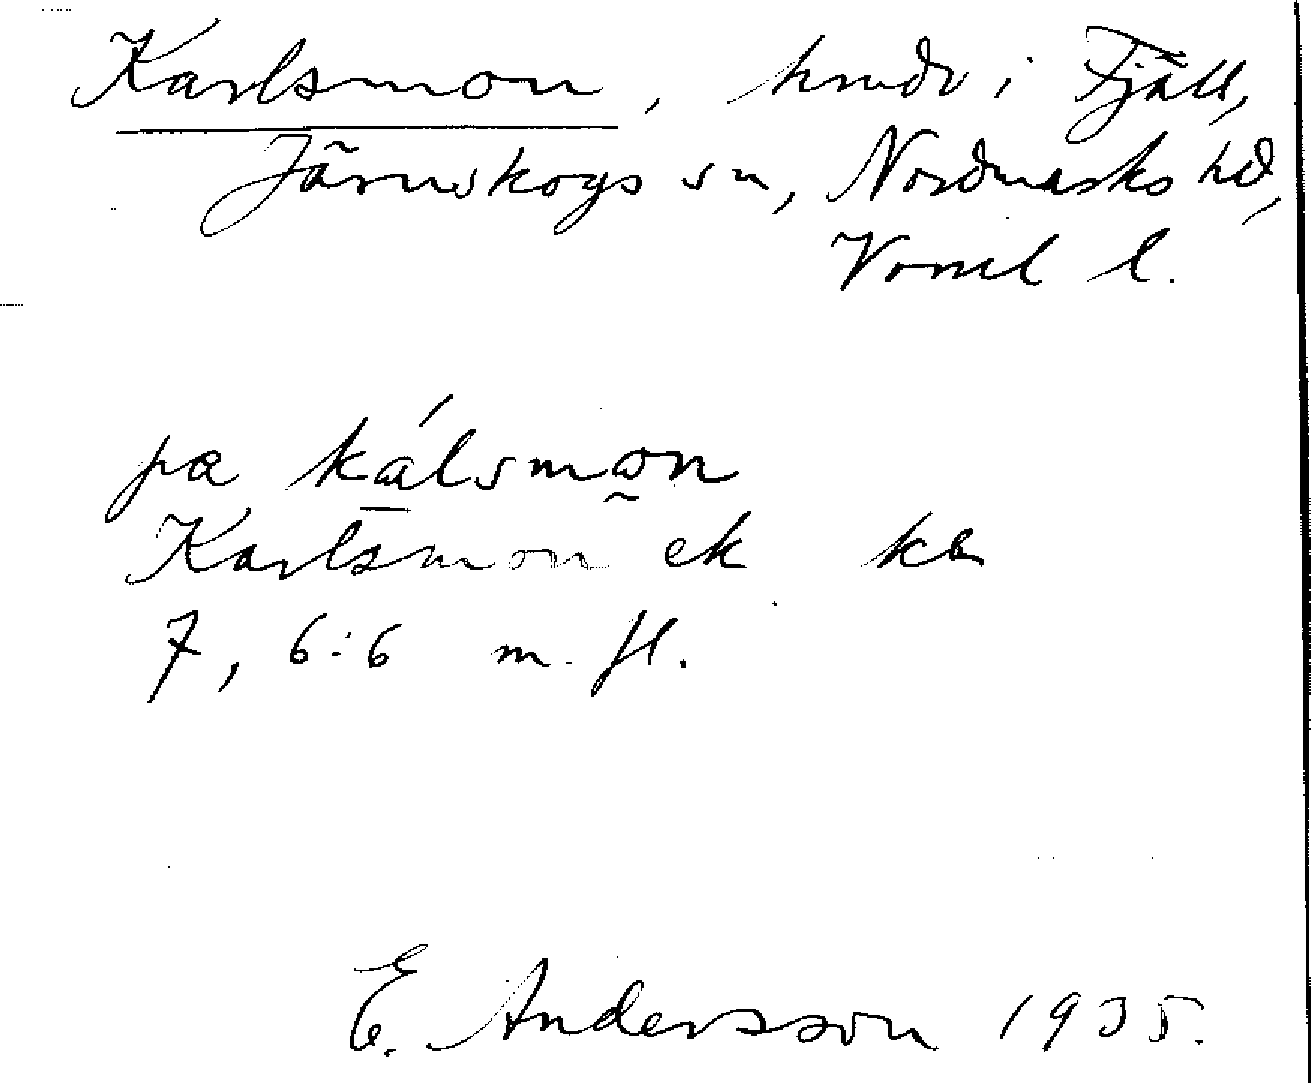 Karlsmon, hmdv i Fjäll,
Järnskogs sn, Nordmarks hd,
Vrml l.
pa kálsmon
Karlsmon ek kb
7, 6:6 m. fl.
E. Andersson 1935.